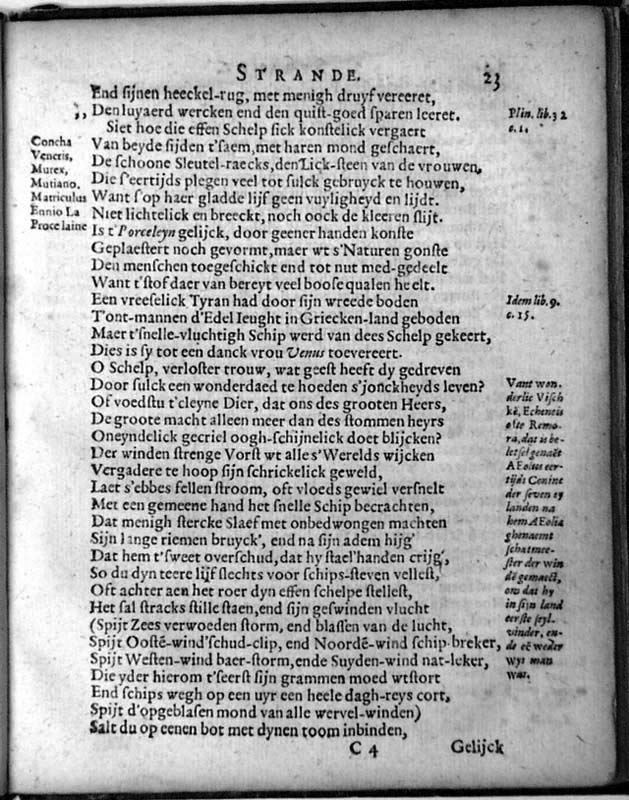 STRANDE. 23
End sijnen heeckel-rug, met menigh druyf vereeret,
,, Den luyaerd wercken end den quist-goed sparen leeret.
Siet hoe die effen Schelp sick konstelick vergaert
Van beyde sijden t'saem, met haren mond geschaert,
De schoone Sleutel-raecks, den Lick-steen van de vrouwen,
Die s'eertijds plegen veel tot sulck gebruyck te houwen,
Want s'op haer gladde lijf geen vuyligheyd en lijdt.
Niet lichtelick en breeckt, noch oock de kleeren slijt.
Is t'Porceleyn gelijck, door geener handen konste
Geplaestert noch gevormt, maer wt s'Naturen gonste
Den menschen toegeschickt end tot nut med-gedeelt
Want t'stof daer van bereyt veel boose qualen heelt.
Een vreeselick Tyran had door sijn wreede boden
T'ont-mannen d'Edel Ieught in Griecken-land geboden
Maer t'snelle-vluchtigh Schip werd van dees Schelp gekeert,
Dies is sy tot een danck vrou Venus toevereert.
O Schelp, verloster trouw, wat geest heeft dy gedreven
Door sulck een wonderdaed te hoeden s'jonckheyds leven?
Of voedstu t'cleyne Dier, dat ons des grooten Heers,
De groote macht alleen meer dan des stommen heyrs
Oneyndelick gecriel oogh-schijnelick doet blijcken?
Der winden strenge Vorst wt alle s'Werelds wijcken
Vergadere te hoop sijn schrickelick geweld,
Laet s'ebbes fellen stroom, oft vloeds gewiel versnelt
Met een gemeene hand het snelle Schip becrachten,
Dat menigh stercke Slaef met onbedwongen machten
Sijn lange riemen bruyck', end na sijn adem hijg'
Dat hem t'sweet overschud, dat hy stael'handen crijg',
So du dyn teere lijf slechts voor schips-steven vellest,
Oft achter aen het roer dyn effen schelpe stellest,
Het sal stracks stille staen, end sijn geswinden vlucht
(Spijt Zees verwoeden storm, end blassen van de lucht,
Spijt Oostē-wind'schud-clip, end Noordē-wind schip-breker,
Spijt Westen-wind baer-storm, ende Suyden-wind nat-leker,
Die yder hierom t'seerst sijn grammen moed wtstort
End schips wegh op een uyr een heele dagh-reys cort,
Spijt d'opgeblasen mond van alle wervel-winden)
Salt du op eenen bot met dynen toom inbinden,
C 4 Gelijck
Concha
Veneris,
Murex,
Mutiano.
Matriculus
Ennio La
Procelaine
Plin. lib. 32
c. 1.
Idem lib. 9.
c. 15.
Vant won-
derlic Visch
kē, Echeneis
ofte Remo-
ra, dat is be-
letsel genaēt
AEolus eer-
tijds Coninc
der seven ey
landen na
hem AEolia
ghenaemt
schatmee-
ster der win
dē gemaect,
om dat hy
in sijn land
eerste seyl-
vinder, en-
de eē weder
wijs man
was.